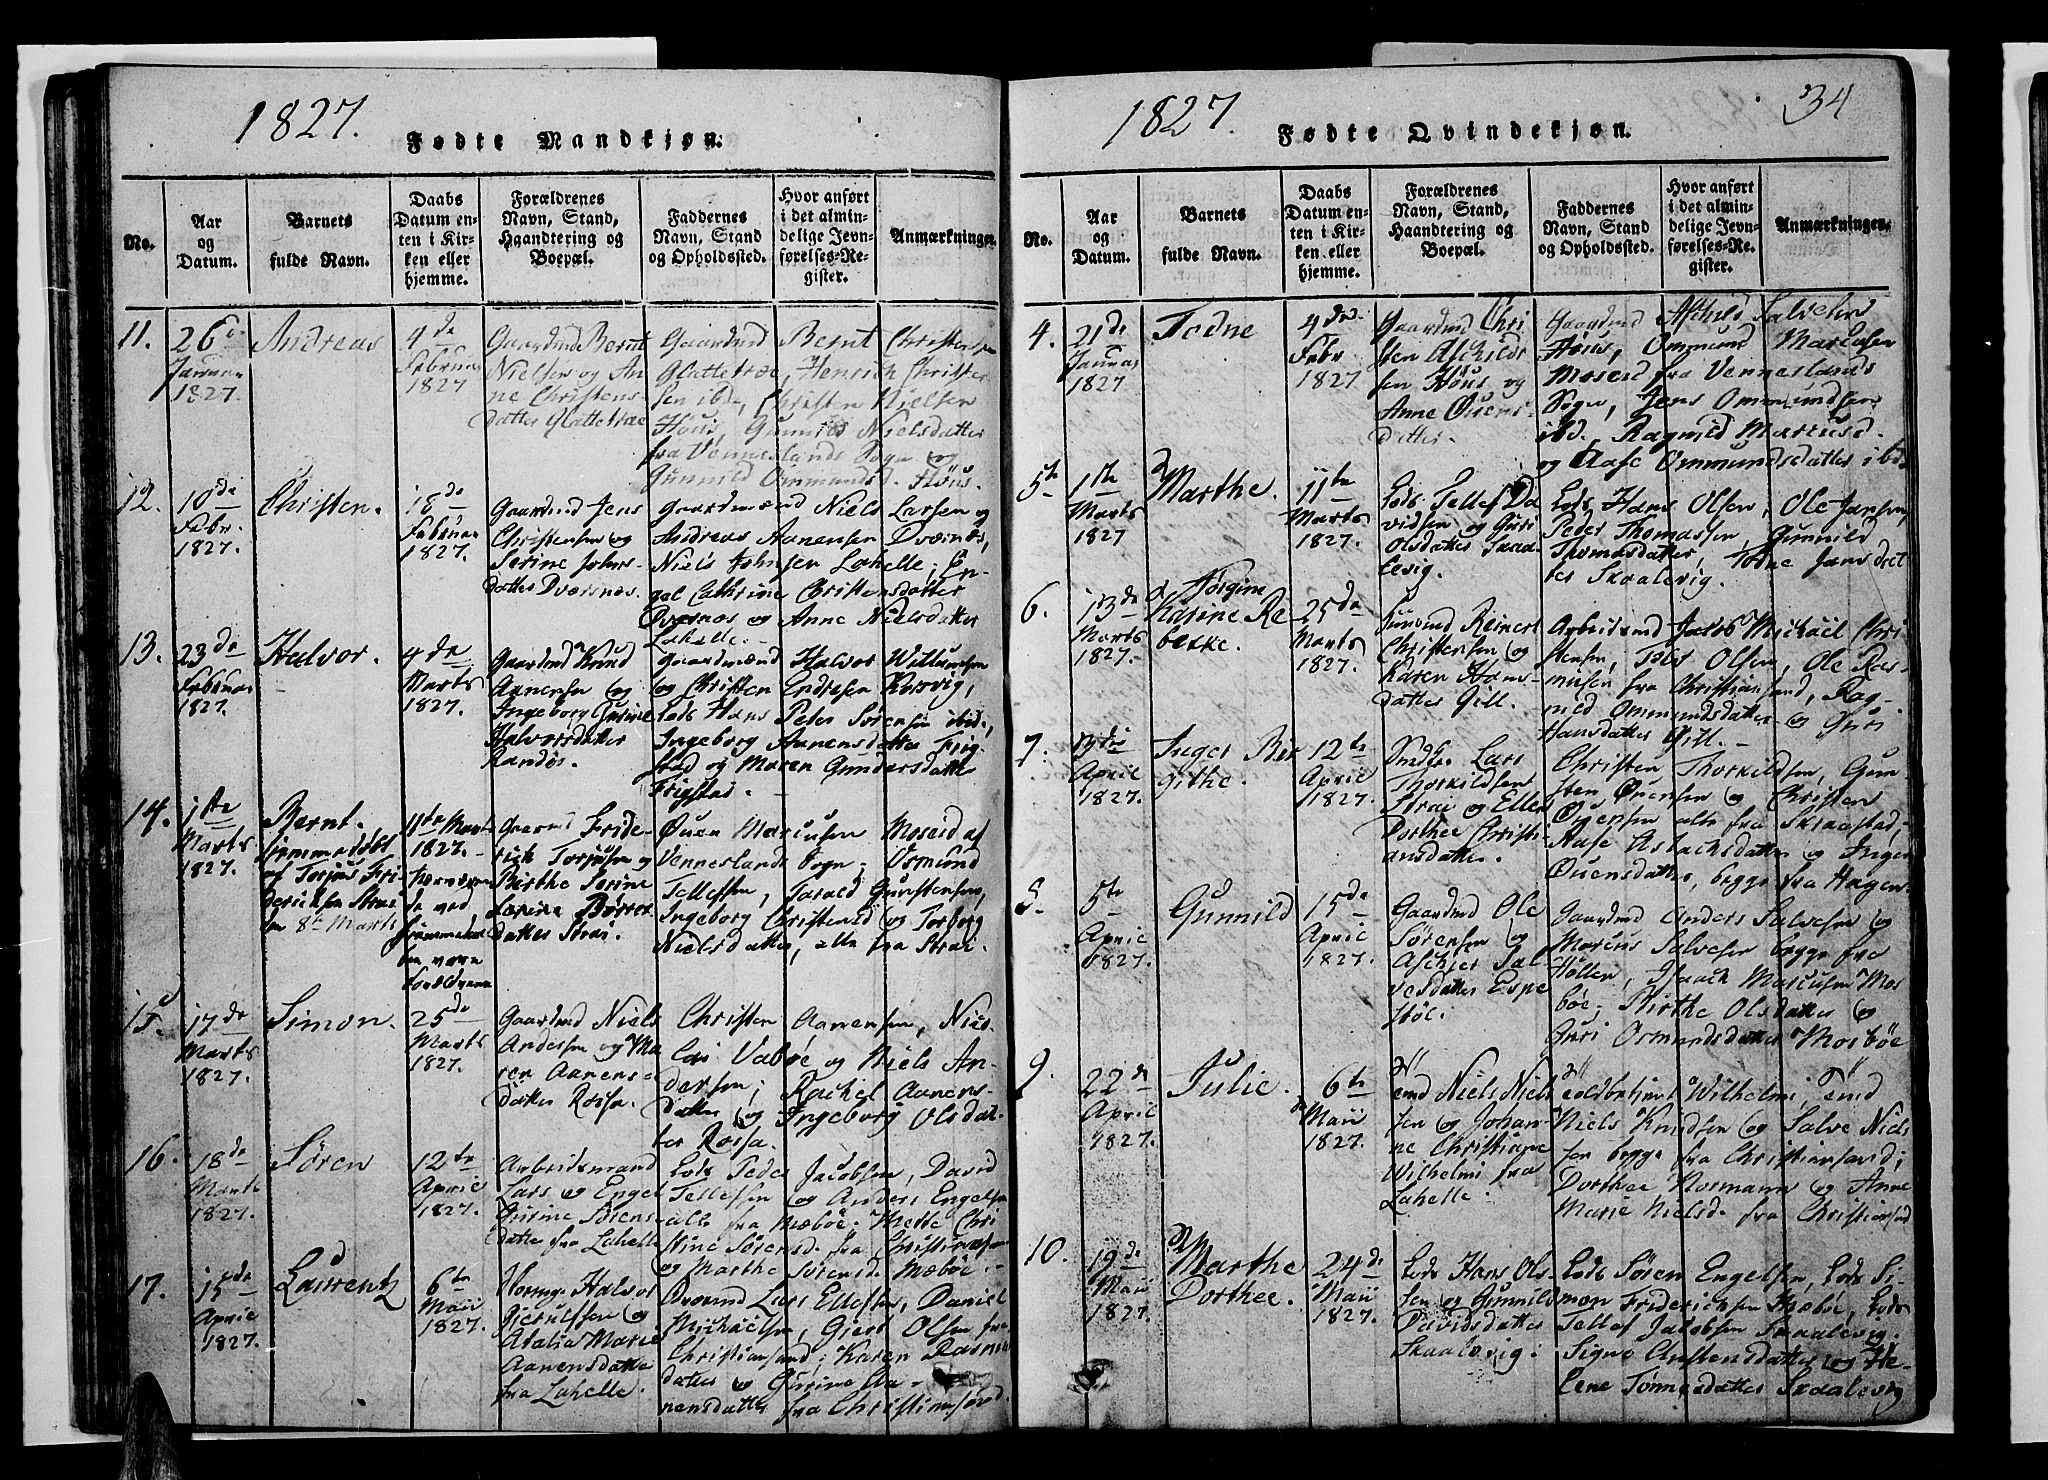 1827.
Fødte Mandkjøn.
No.
Aar
og
Datum.
Barnets
fulde Navn.
Daabs
Datum en-
ten i Kir-
ken eller
hjemme.
Forældrenes
Navn, Stand,
Haandtering og
Boepæl.
Faddernes
Navn, Stand
og Opholdssted.
Hvor anført
i det almin-
delige Jevn-
førelses-Re-
gister.
Anmærkninger.
11.
26de
Januar
1827.
Andreas
4de
Februar
1827
Gaardmd Bernt
Nielsen og An
ne Christens
datter Glattetræ
Gaardmd Bernt Christensen
Glattetræ, Henrich Christen
sen ibd, Christen Nielsen
Høus Gunnild Nielsdatter
fra Venneslands Sogn og
Gunnild Ommundsd. Høus.
12.
10de
Febr.
1827.
Christen.
18de
Februar
1827.
Gaardmd Jens
Christensen og
Serine Johns
datter Dværsnæs.
Gaardmænd Niels Larsen og
Andreas Aanensen Dværnæs,
Niels Johnsen Lahelle; En-
gel Cathrine Christensdatter
Dværnæs og Anne Nielsdatter
Lahelle.
13.
23de
Februar
1827.
Halvor.
4de
Marts
1827.
Gaardmd Knud
Aanensen og
Ingeborg Gurine
Halvorsdatter
Randøs.
Gaardmænd Halvor Willumsen
og Christen Endresen Korsvig,
Lods Hans Peter Sørensen ibid,
Ingeborg Aanensdatter Frig-
stad og Maren Gundersdatter
Frigstad.
14.
1ste
Marts
1827.
Bernt.
hjemmedøbt
af Torjus Fri
derichsen Strai
den 8de Marts
11te Marts
1827.
Gaardmd Fride-
rich Torjusen og
Birthe Serine
Larine Børres
datter Strai.
Ouen Marcusen Moseid af
Venneslands Sogn; Osmund
Tellefsen, Tarald Gunstensen,
Ingeborg Christensd og Torborg
Nielsdatter, alle fra Strai.
15.
17de
Marts
1827.
Simon.
25de
Marts
1827.
Gaardmd Niels
Andersen og Ma
ren Aanens-
datter Rossa.
Christen Aanensen, Nico
lai Vabøe og Niels An-
dersen; Rachel Aanens-
datter og Ingeborg Olsdat-
ter Rossa.
16.
18de
Marts
1827.
Søren
12te
April
1827.
Arbeidsmand
Lars og Engel
Gurine Sørens-
datter fra Lahelle
Lods Peder Jacobsen, David
Tellefsen og Anders Engelsen
alle fra Mæbøe; Mette Chri
stine Sørensd fra Christianssand
og Marthe Sørensd Mæbøe.
17.
15de
April
1827.
Laurentz
6te
Maii
1827.
Halvor
Gjerulfsen og
Atalia Marie
Aanensdatter
fra Lahelle.
Lars Ellefsen, Daniel
Michaelsen, Gjert Olsen fra
Christianssand; Karen Rasmus
datter og Gurine Aa-
nensdatter fra Christianssand.
1827.
34
Fødte Qvindekjøn.
No.
Aar
og
Datum.
Barnets
fulde Navn.
Daabs
Datum en-
ten i Kir-
ken eller
hjemme.
Forældrenes
Navn, Stand,
Haandtering og
Boepæl.
Faddernes
Navn, Stand
og Opholdssted.
Hvor anført
i det almin-
delige Jevn-
førelses-Re-
gister.
Anmærkninger.
4.
21de
Januar
1827
Todne
4de
Febr
1827.
Gaardmd Chri
sten Aschilds
sen Høus og
Anne Ouens-
datter.
Gaardmd Aschild Salvesen
Høus, Ommund Marcusen
Moseid fra Venneslands
Sogn, Jens Ommundsen
ibd. Ragnild Marcusd.
og Aase Ommundsdatter ibd
5te
1ste
Marts
1827
Marthe.
11te
Marts
1827.
Lods Tellef Da
vidsen og Guri
Olsdatter Skaa-
levig.
Lods Hans Olsen, Ole Jansen,
Peder Thomassen, Gunnild
Thomasdatter, Todne Jansdat
ter Skaalevig.
6.
13de
Marts
1827.
Torgine
Karine Re
bekke.
25de
Marts
1827.
Reinert
Christensen og
Karen Hans-
datter Gill.
Arbeidsmd Jacob Michael Chri-
stensen, Peder Olsen, Ole Ras-
musen fra Christianssand, Rag-
nild Ommundsdatter og Guri
Hansdatter Gill.
7.
April
1827.
Inger Bir
githe.
12te
April
1827.
Lars
Thorkildsen
Strai og Ellen
Dorthee Christi
ansdatter.
Christen Thorkildsen, Gun-
sten Ouensen og Christen
Ougensen alle fra Skraastad,
Aase Aslachsdatter og Inger
Ouensdatter, begge fra Hagen.
8.
5te
April
1827.
Gunnild
15de
April
1827.
Gaardmd Ole
Sørensen og
Aschjer Sal-
vesdatter Espe
støe.
Gaardmd Anders Salvesen og
Marcus Salvesen begge fra
Høllen, Isaach Marcusen Mos
bøe; Birthe Olsdatter og
Guri Osmundsdatter Mosbøe
9.
22de
April
1827.
Julie.
6te
Maii
1827.
Niels Niel
sen og Johan-
ne Christiane
Wilhelmi fra
Lahelle.
Wilhelmi,
Niels Knudsen og Salve Niel
sen begge fra Christianssand;
Dorthee Normann og Anne
Marie Nielsd. fra Christianssand
10.
19de
Maii
1827.
Marthe
Dorthee.
24de
Maii
1827.
Lods Hans Ol-
sen og Gunnild
Davidsdatter
Skaalevig.
Lods Søren Engelsen, Lods Si-
mon Friderichsen Mæbøe, Lods
Tellef Jacobsen Skaalevig.
Signe Christensdatter og He-
lene Tønnesdatter Skaalevig